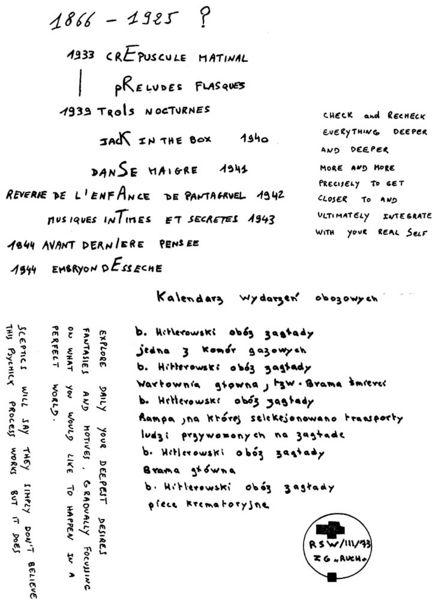 1866 - 1925 ?
1933 CREPUSCULE MATINAL
PRELUDES FLASQUES
1939 TROIS NOCTURNES
JACK IN THE BOX 1940
DANSE MAIGRE 1941
REVERIE DE L'ENFANCE DE PANTAGRUEL 1942
MUSIQUES INTIMES ET SECRETES 1943
1944 AVANT DERNIERE PENSEE
1944 EMBRYON DESSECHE
CHECK and RECHECK
EVERYTHING DEEPER
AND DEEPER
MORE AND MORE
PRECISELY TO GET
CLOSER TO AND
ULTIMATELY INTEGRATE
WITH YOUR REAL SELF
Kalendarz wydarzeń obozowych
b. Hitlerowski obóz zagłady
jedna z komór gazowych
b. Hitlerowski obóz zagłady
Wartownia głowna, tzw. Brama śmierci
b. Hitlerowski obóz zagłady
Rampa, na której selekcjonowano transporty
ludzi przywożonych na zagładę
b. Hitlerowski obóz zagłady
Brama główna
b. Hitlerowski obóz zagłady
piece krematoryjne
EXPLORE DAILY YOUR DEEPEST DESIRES
FANTASIES AND MOTIVES, GRADUALLY FOCUSSING
ON WHAT YOU WOULD LIKE TO HAPPEN IN A
PERFECT WORLD.
SCEPTICS WILL SAY THEY SIMPLY DON'T BELIEVE
THIS PSYCHICK PROCESS WORKS BUT IT DOES
RSW/III/73
ZG "RUCH"